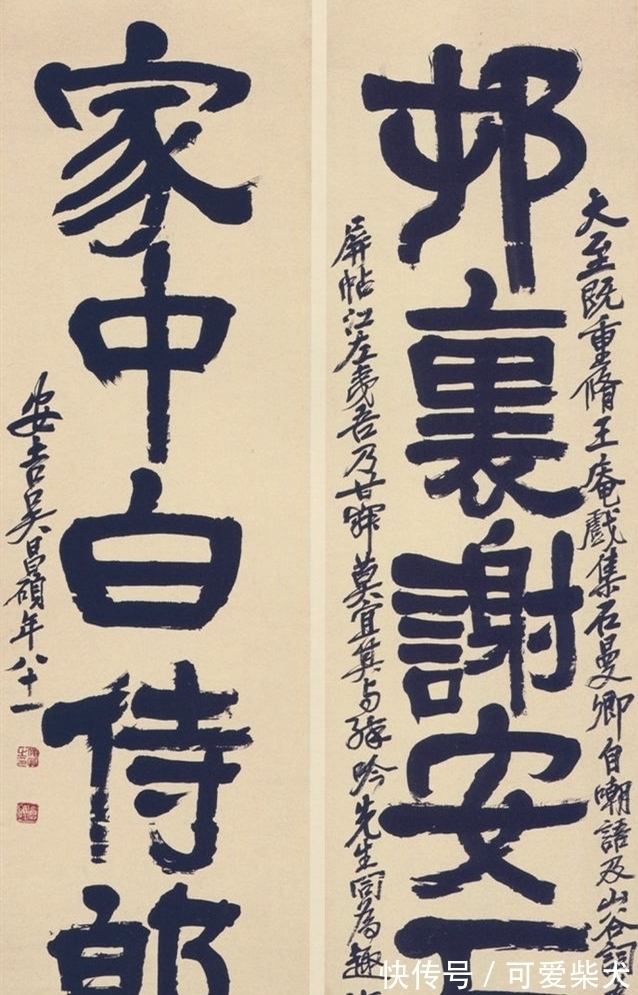 大至既重脩王庵戲集石曼卿自嘲語及山谷詞
邨裏謝安
屏帖江左夷吾乃甘莫宜其与吟先生同為趣
家中白侍郎
安吉吳昌碩年八十一
快传号 / 可爱柴犬